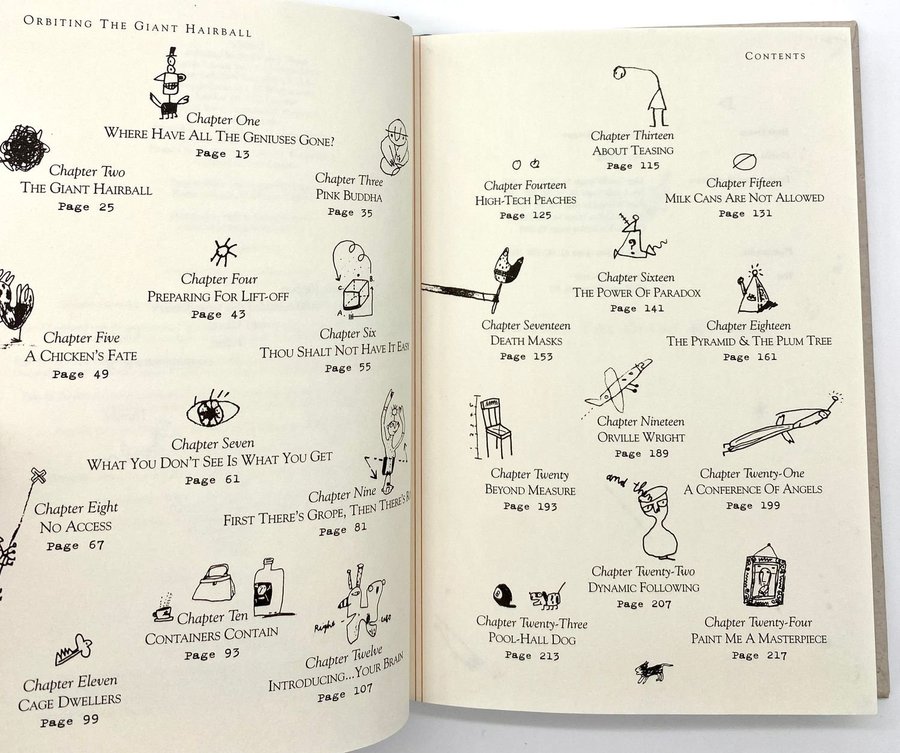 ORBITING THE GIANT HAIRBALL
Chapter One
WHERE HAVE ALL THE GENIUSES GONE?
Page 13
Chapter Two
THE GIANT HAIRBALL
Page 25
Chapter Three
PINK BUDDHA
Page 35
Chapter Four
PREPARING FOR LIFT-OFF
Page 43
Chapter Five
A CHICKEN'S FATE
Page 49
Chapter Six
THOU SHALT NOT HAVE IT EASY
Page 55
Chapter Seven
WHAT YOU DON'T SEE IS WHAT YOU GET
Page 61
Chapter Eight
NO ACCESS
Page 67
Chapter Nine
FIRST THERE'S GROPE, THEN THERE'S
Page 81
Chapter Ten
CONTAINERS CONTAIN
Page 93
Right
Left
Chapter Eleven
CAGE DWELLERS
Page 99
Chapter Twelve
INTRODUCING...YOUR BRAIN
Page 107
CONTENTS
Chapter Thirteen
ABOUT TEASING
Page 115
Chapter Fourteen
HIGH-TECH PEACHES
Page 125
Chapter Fifteen
MILK CANS ARE NOT ALLOWED
Page 131
?
Chapter Sixteen
THE POWER OF PARADOX
Page 141
Chapter Seventeen
DEATH MASKS
Page 153
Chapter Eighteen
THE PYRAMID & THE PLUM TREE
Page 161
Chapter Nineteen
ORVILLE WRIGHT
Page 189
Chapter Twenty
BEYOND MEASURE
Page 193
Chapter Twenty-One
A CONFERENCE OF ANGELS
Page 199
and
Chapter Twenty-Two
DYNAMIC FOLLOWING
Page 207
Chapter Twenty-Three
POOL-HALL DOG
Page 213
Chapter Twenty-Four
PAINT ME A MASTERPIECE
Page 217